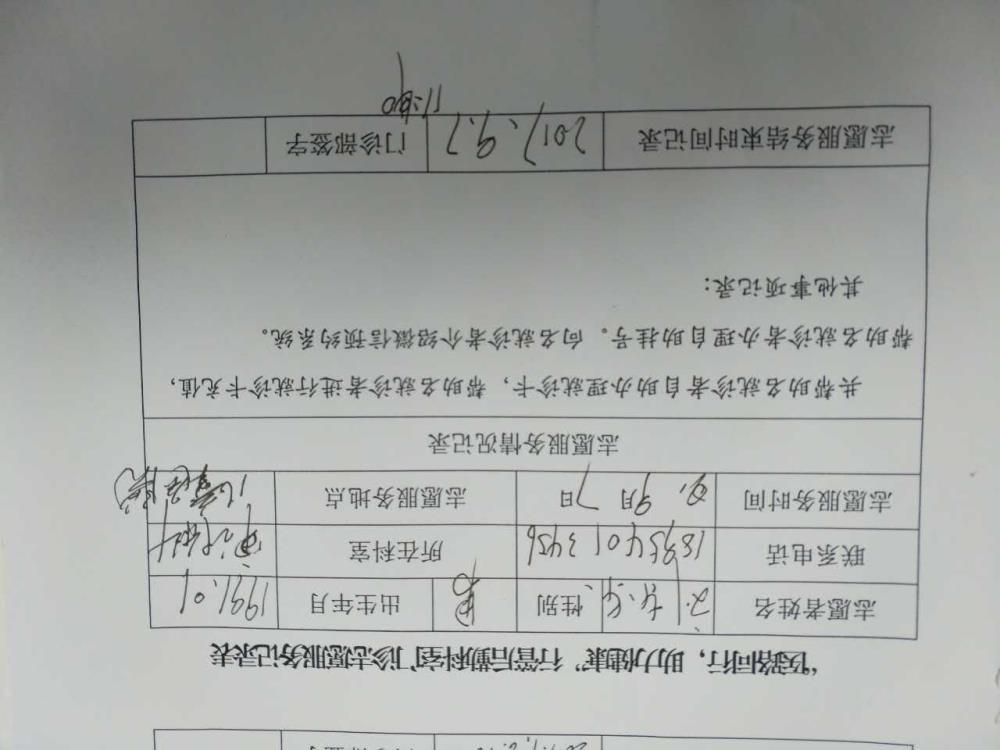 “医路同行，助力健康”行管后勤科室门诊志愿服务记录表
志愿者姓名 性别 男 出生年月 1991.01
联系电话 18954013456 所在科室 审计科
志愿服务时间 9月7日 志愿服务地点 儿童医院
志愿服务情况记录
共帮助名就诊者自助办理就诊卡，帮助名就诊者进行就诊卡充值，
帮助名就诊者办理自助挂号。向名就诊者介绍微信预约系统。
其他事项记录：
志愿服务结束时间记录 2017.9.7 门诊部签字